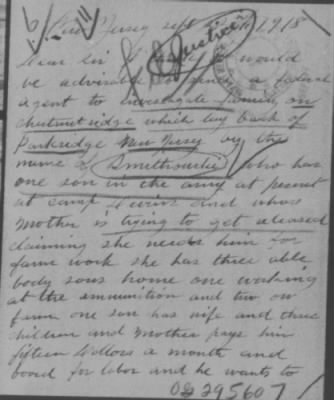 New Jersey sept 1918
Justice
Dear Sir I would
be advisable a federal
agent to investigate family on
chestnut ridge which lay back of
Parkridge New Jersey by the
name of who has
one son in the army at present
at camp and whos
mother is trying to get released
claiming she needs him for
farm work she has three able
body sons home one working
at the ammunition and two on
farm one son has wife and three
children and mother pays him
fifteen dollors a month and
board for labor and he wants to
OG 295607